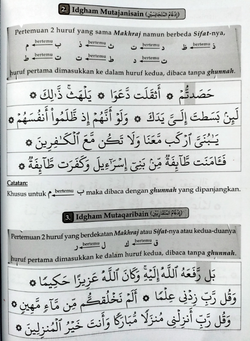 2. Idgham Mutajanisain (إِدْغَامْ الْمُتَجَانِسَيْنِ)
Pertemuan 2 huruf yang sama Makhraj namun berbeda Sifat-nya,
huruf pertama dimasukkan ke dalam huruf kedua, dibaca tanpa ghunnah.
حَصَدتُّمْ * أَثْقَلَت دَّعَوَا * يَلْهَث ذَّٰلِكَ *
لَئِنۢ بَسَطتَ إِلَىَّ يَدَكَ * وَلَوْ أَنَّهُمْ إِذ ظَّلَمُوٓا۟ أَنفُسَهُمْ *
يَـٰبُنَىَّ ٱرْكَب مَّعَنَا وَلَا تَكُن مَّعَ ٱلْكَـٰفِرِينَ *
فَـَٔامَنَت طَّآئِفَةٌ مِّنۢ بَنِىٓ إِسْرَٰٓءِيلَ وَكَفَرَت طَّآئِفَةٌ *
Catatan:
Khusus untuk م bertemu ب maka dibaca dengan ghunnah yang dipanjangkan.
3. Idgham Mutaqaribain (إِدْغَامْ الْمُتَقَارِبَيْنِ)
Pertemuan 2 huruf yang berdekatan Makhraj atau Sifat-nya atau kedua-duanya
ق bertemu ك ل bertemu ر
huruf pertama dimasukkan ke dalam huruf kedua, dibaca tanpa ghunnah.
بَل رَّفَعَهُ ٱللَّهُ إِلَيْهِ وَكَانَ ٱللَّهُ عَزِيزًا حَكِيمًا *
وَقُل رَّبِّ زِدْنِى عِلْمًا * أَلَمْ نَخْلُقكُّم مِّن مَّآءٍ مَّهِينٍ *
وَقُل رَّبِّ أَنزِلْنِى مُنزَلًا مُّبَارَكًا وَأَنتَ خَيْرُ ٱلْمُنزِلِينَ *